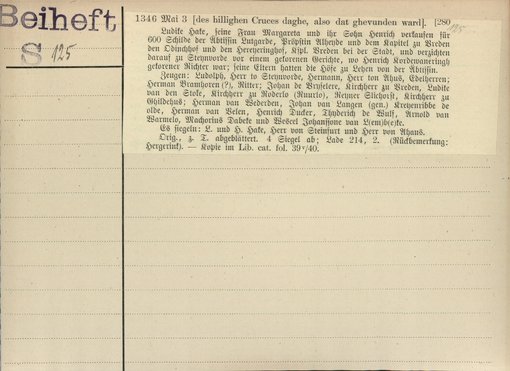 Beiheft
S 125
1346 Mai 3 [des billighen Cruces daghe, also dat ghevunden ward]. [280
125
Ludike Hake, seine Frau Margareta und ihr Sohn Henrich verkaufen für
600 Schilde der Äbtissin Lutgarde, Pröpstin Alheyde und dem Kapitel zu Vreden
den Odinchhof und den Herryeringhof, Kspl. Vreden bei der Stadt, und verzichten
darauf zu Steynvorde vor einem gekorenen Gerichte, wo Henrich Kordewaneringh
gekorener Richter war; seine Eltern hatten die Höfe zu Lehen von der Äbtissin.
Zeugen: Ludolph, Herr to Steynvorde, Hermann, Herr ton Ahus, Edelherren;
Herman Bramhoren (?), Ritter; Johan de Vryselere, Kirchherr zu Vreden, Ludike
van den Stole, Kirchherr zu Roderlo (Ruurlo), Reyner Slichorst, Kirchherr zu
Ghildehus; Herman van Wederden, Johan van Langen (gen.) Kreyenribbe de
olde, Herman van Velen, Henrich Ducker, Thyderich de Wulf, Arnold van
Warmelo, Machorius Dabeke und Wescel Johanssone van L(em)b(e)ke.
Es siegeln: L. und H. Hake, Herr von Steinfurt und Herr von Ahaus.
Orig., z. T. abgeblättert. 4 Siegel ab; Lade 214, 2. (Rückbemerkung:
Hergerink). — Kopie im Lib. cat. fol. 39ᵛ/40.